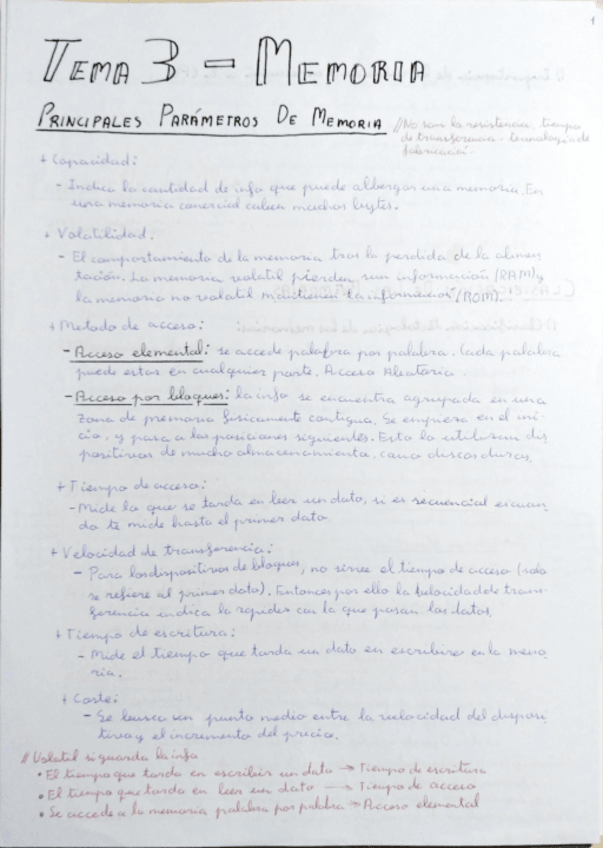 1
TEMA 3 - MEMORIA
PRINCIPALES PARÁMETROS DE MEMORIA
//No son la resistencia, tiempo
de transferencia - tecnología de
fabricación.
+ Capacidad:
- Indica la cantidad de info que puede albergar una memoria. En
una memoria comercial caben muchos bytes.
+ Volatilidad:
- El comportamiento de la memoria tras la perdida de la alimen
tación. La memoria volatil pierden su información (RAM) y
la memoria no volatil mantienen la información (ROM).
+ Metodo de acceso:
- Acceso elemental: se accede palabra por palabra. Cada palabra
puede estar en cualquier parte. Acceso Aleatorio.
- Acceso por bloques: la info se encuentra agrupada en una
zona de memoria fisicamente contigua. Se empieza en el ini-
cio, y pasa a las posiciones siguientes. Esto lo utilizan dis
positivos de mucho almacenamiento, como discos duros.
+ Tiempo de acceso:
- Mide lo que se tarda en leer un dato, si es secuencial escuan
do te mide hasta el primer dato
+ Velocidad de transferencia:
- Para los dispositivos de bloques, no sirve el tiempo de acceso (solo
se refiere al primer dato). Entonces por ello la velocidad de trans-
ferencia indica la rapidez con la que pasan los datos.
+ Tiempo de escritura:
- Mide el tiempo que tarda un dato en escribirse en la memo
ria.
+ Coste:
- Se busca un punto medio entre la velocidad del disposi
tivo y el incremento del precio.
// Volatil si guarda la info
• El tiempo que tarda en escribir un dato → Tiempo de escritura
• El tiempo que tarda en leer un dato → Tiempo de acceso
• Se accede a la memoria palabra por palabra → Acceso elemental